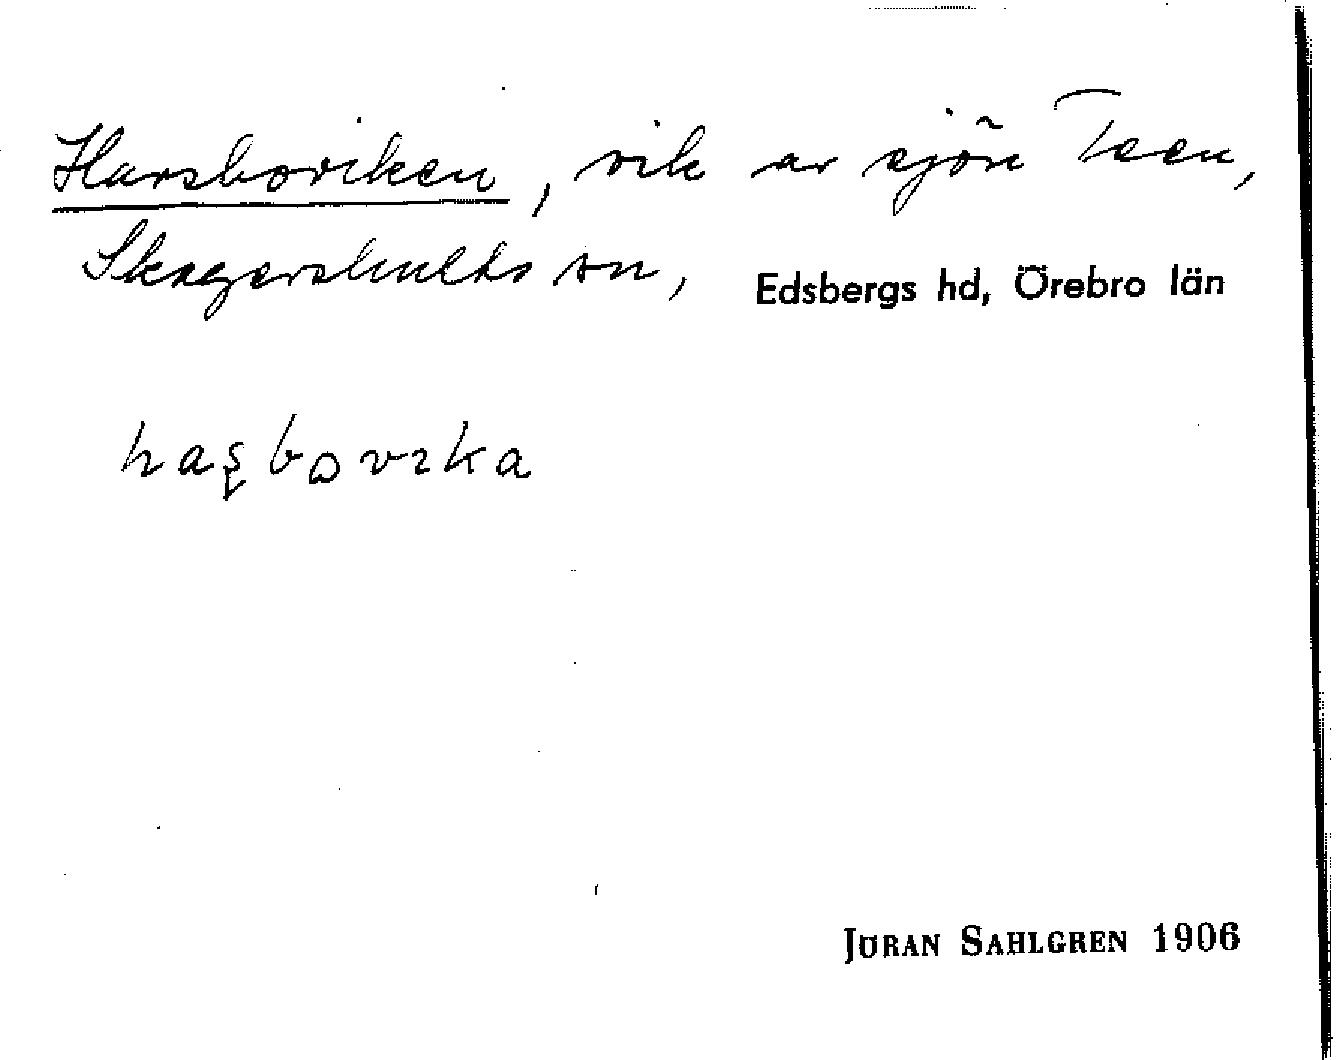 Harsboviken, vik av sjön Teen,
Skagershults sn, Edsbergs hd, Örebro län
haʂbovıka
JÖRAN SAHLGREN 1906